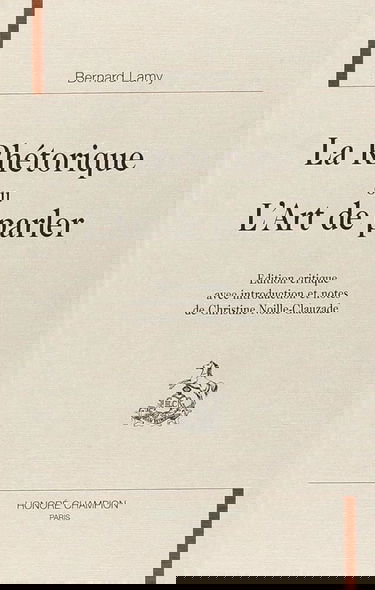 Bernard Lamy
La Rhétorique
ou
L'Art de parler
Edition critique
avec introduction et notes
de Christine Noille-Clauzade
HONORÉ CHAMPION
PARIS